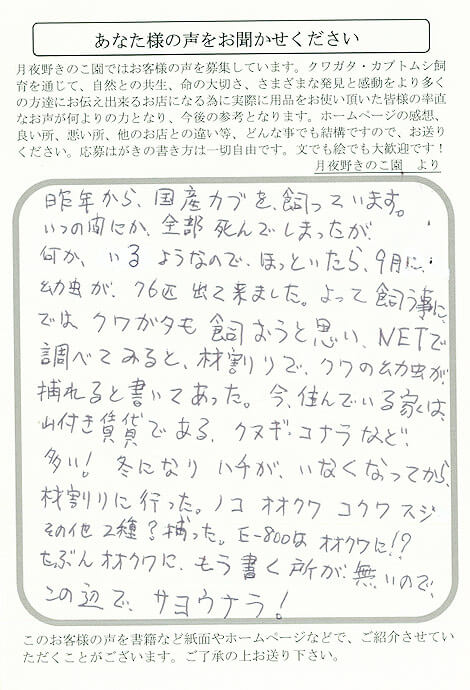 あなた様の声をお聞かせください
月夜野きのこ園ではお客様の声を募集しています。クワガタ・カブトムシ飼
育を通じて、自然との共生、命の大切さ、さまざまな発見と感動をより多く
の方達にお伝え出来るお店になる為に実際に用品をお使い頂いた皆様の率直
なお声が何よりの力となり、今後の参考となります。ホームページの感想、
良い所、悪い所、他のお店との違い等、どんな事でも結構ですので、お送り
ください。応募はがきの書き方は一切自由です。文でも絵でも大歓迎です！
月夜野きのこ園　より
昨年から、国産カブを、飼っています。
いつの間にか、全部 死んでしまったが、
何か、いる ようなので、ほっといたら、9月に、
幼虫が、76匹 出て来ました。よって 飼う事に、
では クワガタも 飼おうと思い、NETで
調べてみると、材割りで、クワの幼虫が、
捕れると書いてあった。今、住んでいる家は、
山付き賃貸である、クヌギ・コナラなど、
多い！ 冬になり ハチが、いなくなってから、
材割りに行った。ノコ オオクワ コクワ スジ
その他 2種？捕った。E-800は オオクワに!?
たぶんオオクワに、もう書く所が、無いので、
この辺で、サヨウナラ！
このお客様の声を書籍など紙面やホームページなどで、ご紹介させてい
ただくことがございます。ご了承の上お送り下さい。